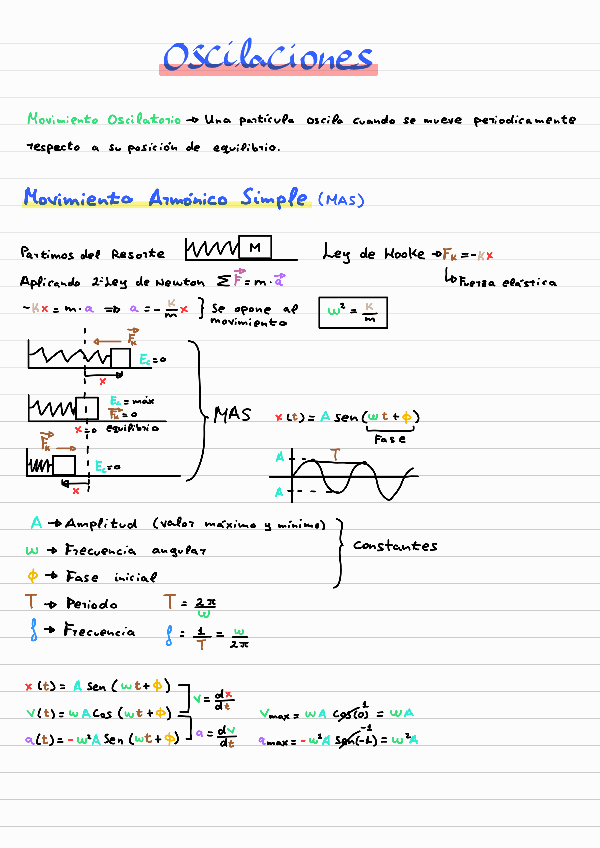 Oscilaciones
Movimiento Oscilatorio → Una partícula oscila cuando se mueve periodicamente
respecto a su posición de equilibrio.
Movimiento Armónico Simple (MAS)
Partimos del Resorte M Ley de Hooke → Fₖ = -Kx
↳ Fuerza elástica
Aplicando 2ª Ley de Newton Σ F⃗ = m · a⃗
-Kx = m · a ⇒ a = - K/m x } Se opone al movimiento
ω² = K/m
F⃗ₖ
Ec = 0
x
Ec = máx
F⃗ₖ = 0
x = 0 equilibrio
F⃗ₖ
Ec = 0
x
MAS
x(t) = A sen (ωt + ϕ)
Fase
A T
A
A → Amplitud (valor máximo y mínimo)
ω → Frecuencia angular
ϕ → Fase inicial
Constantes
T → Periodo T = 2π/ω
f → Frecuencia f = 1/T = ω/2π
x(t) = A Sen (ωt + ϕ)
v = dx/dt
v(t) = ωA Cos (ωt + ϕ) vmax = ωA cos(0) 1 = ωA
a(t) = -ω²A Sen (ωt + ϕ) a = dv/dt amax = -ω²A Sen(-1) -1 = ω²A